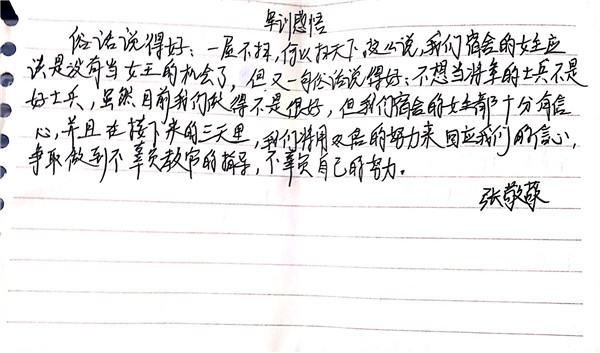 军训感悟
俗话说得好：一屋不扫，何以扫天下，按以说，我们宿舍的女生应
该是没有当女王的机会了，但又一句俗话说得好：不想当将军的士兵不是
好士兵，虽然目前我们做得不是很好，但我们宿舍的女生都十分有信
心，并且在接下来的三天里，我们将用双倍的努力来回应我们的信心，
争取做到不辜负教官的指导，不辜负自己的努力。
张敬蓉